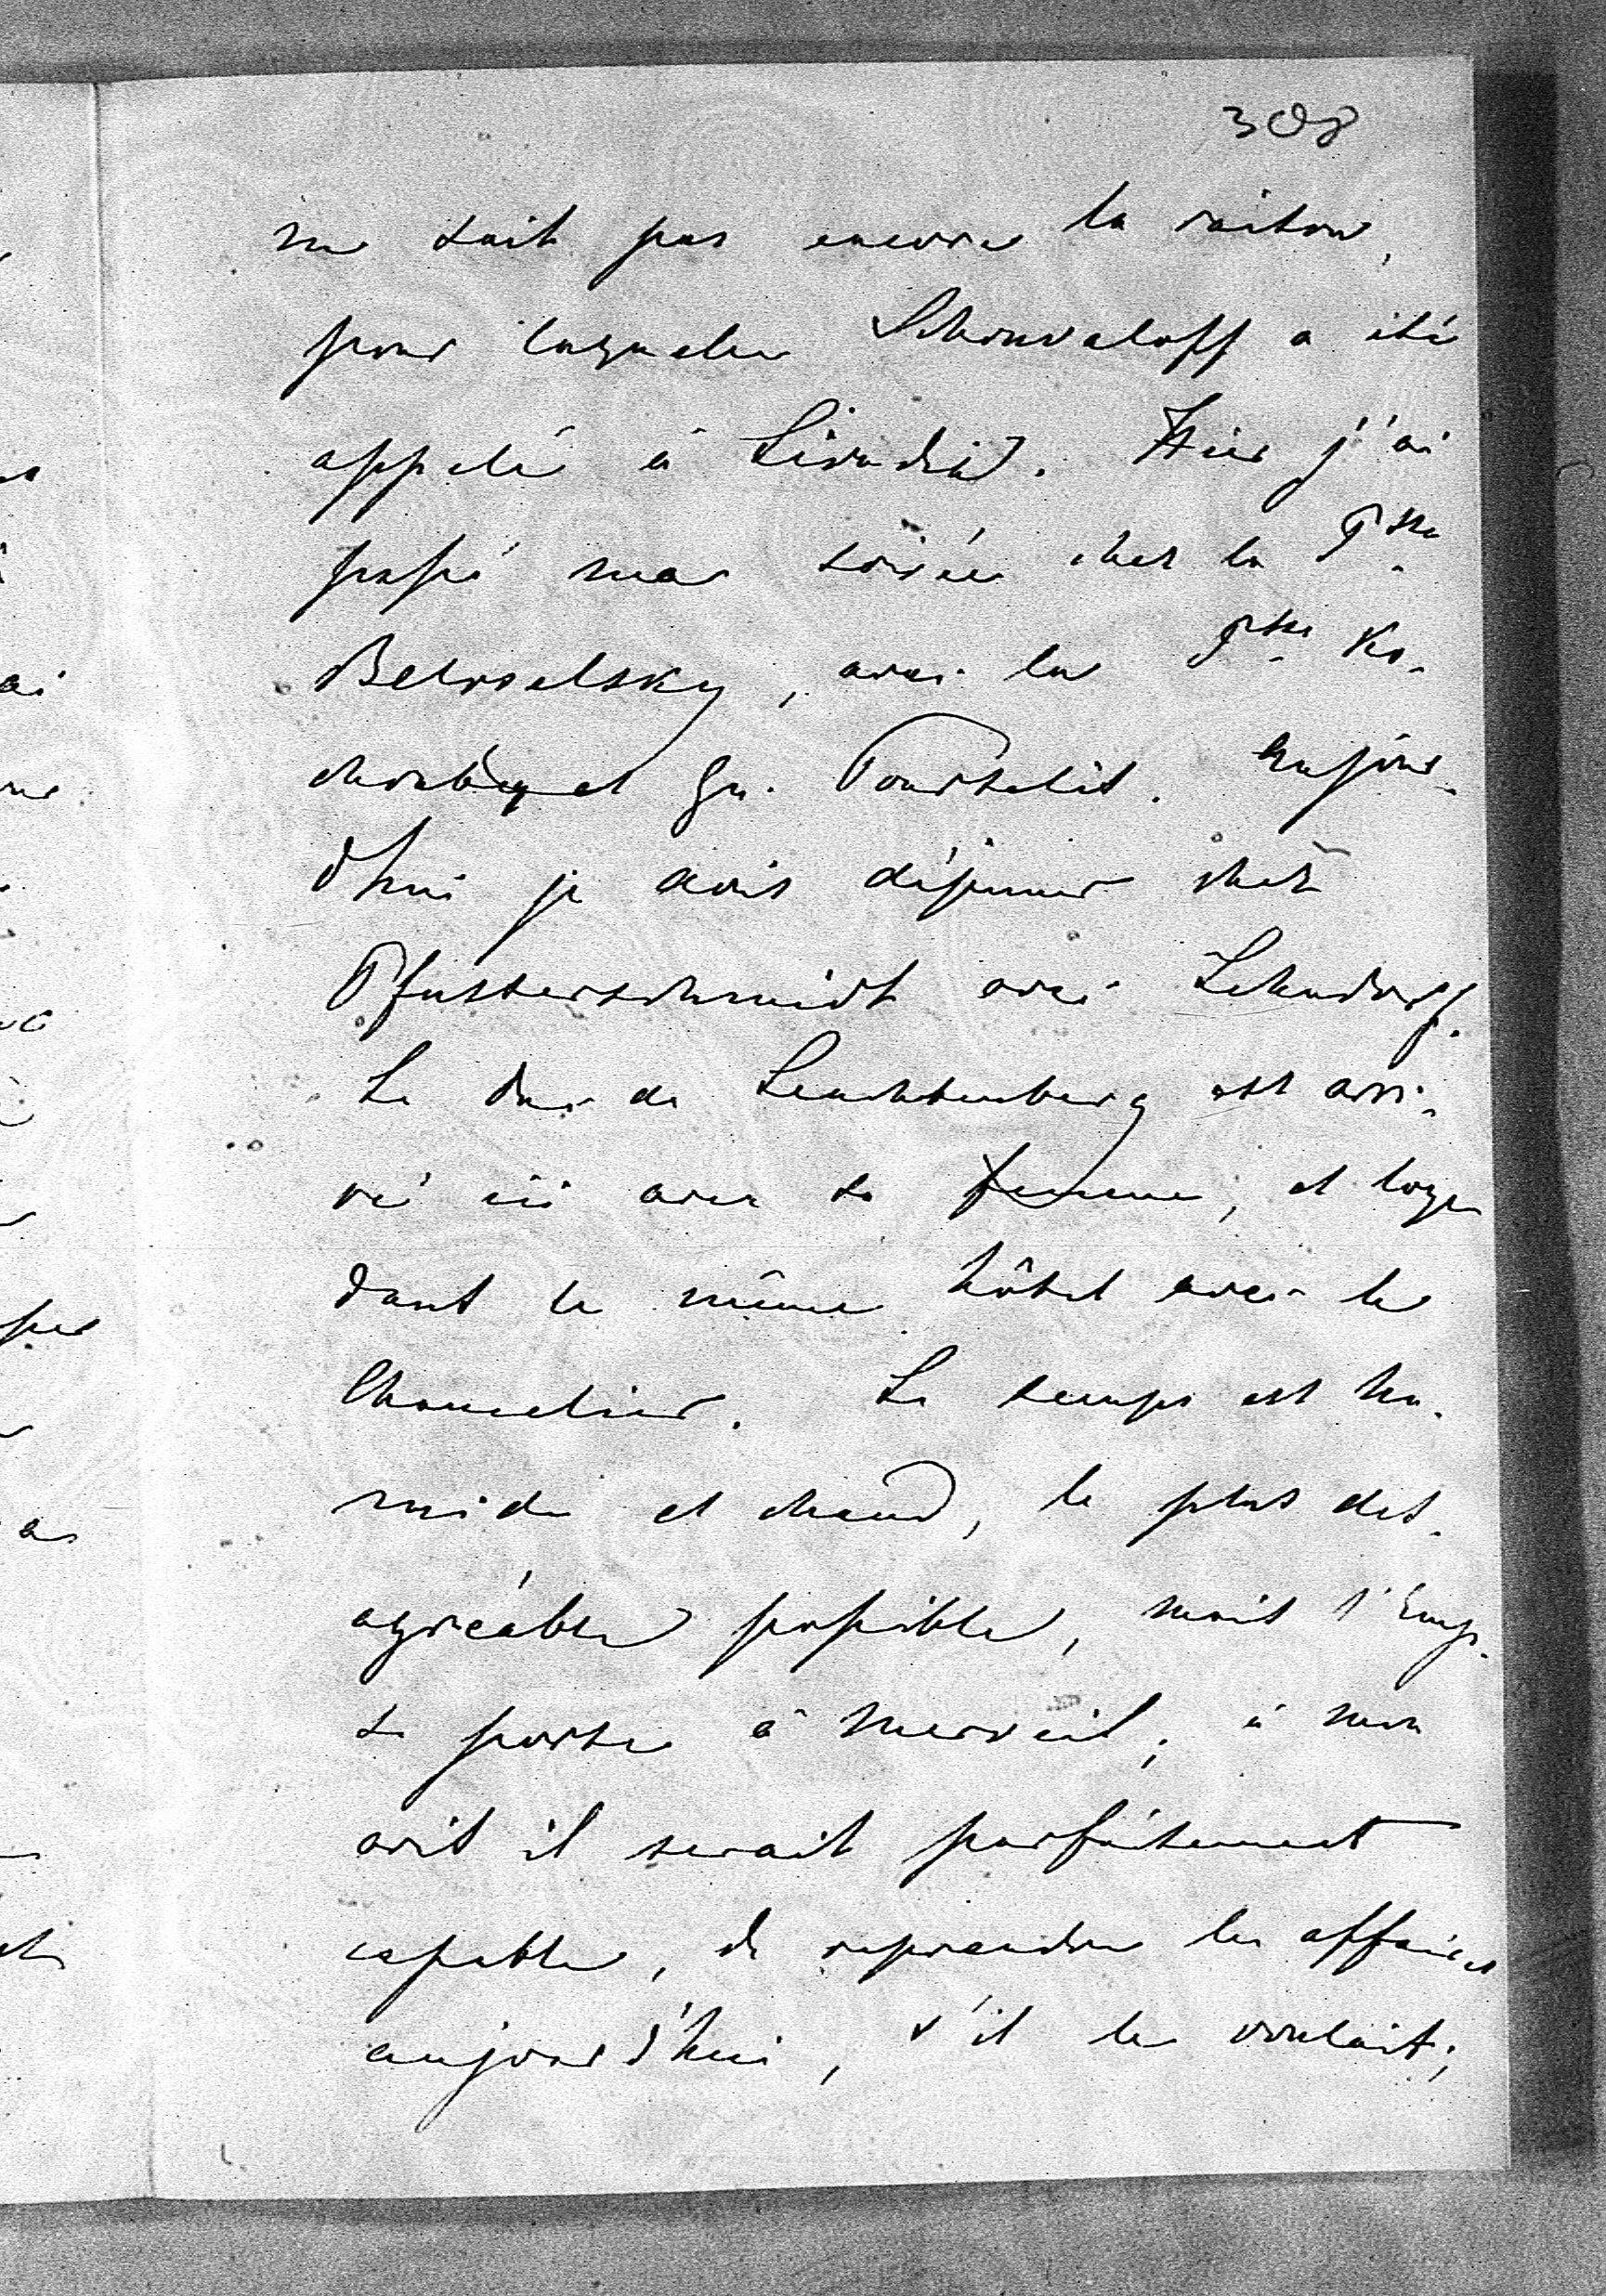 308
ne sait pas encore la raison,
pour laquelle Schouvaloff a été
appelé à Livadia. Hier j'ai
passé ma soirée chez la Psse
Beloselsky, avec la Psse Ko-
choubey et Gr. Pourtalès. Aujour-
d'hui je dois déjeuner chez
Pfusterschmidt avec Lehndorff.
Le duc de Leuchtenberg est arri-
vé ici avec sa femme, et loge
dans le même hôtel avec le
Chancelier. Le temps est hu-
mide et chaud, le plus dés-
agréable possible, mais l'Emp.
se porte à merveil; à mon
avis il serait parfaitement
capable, de reprendre les affaires
aujourd'hui, s'il le voulait;